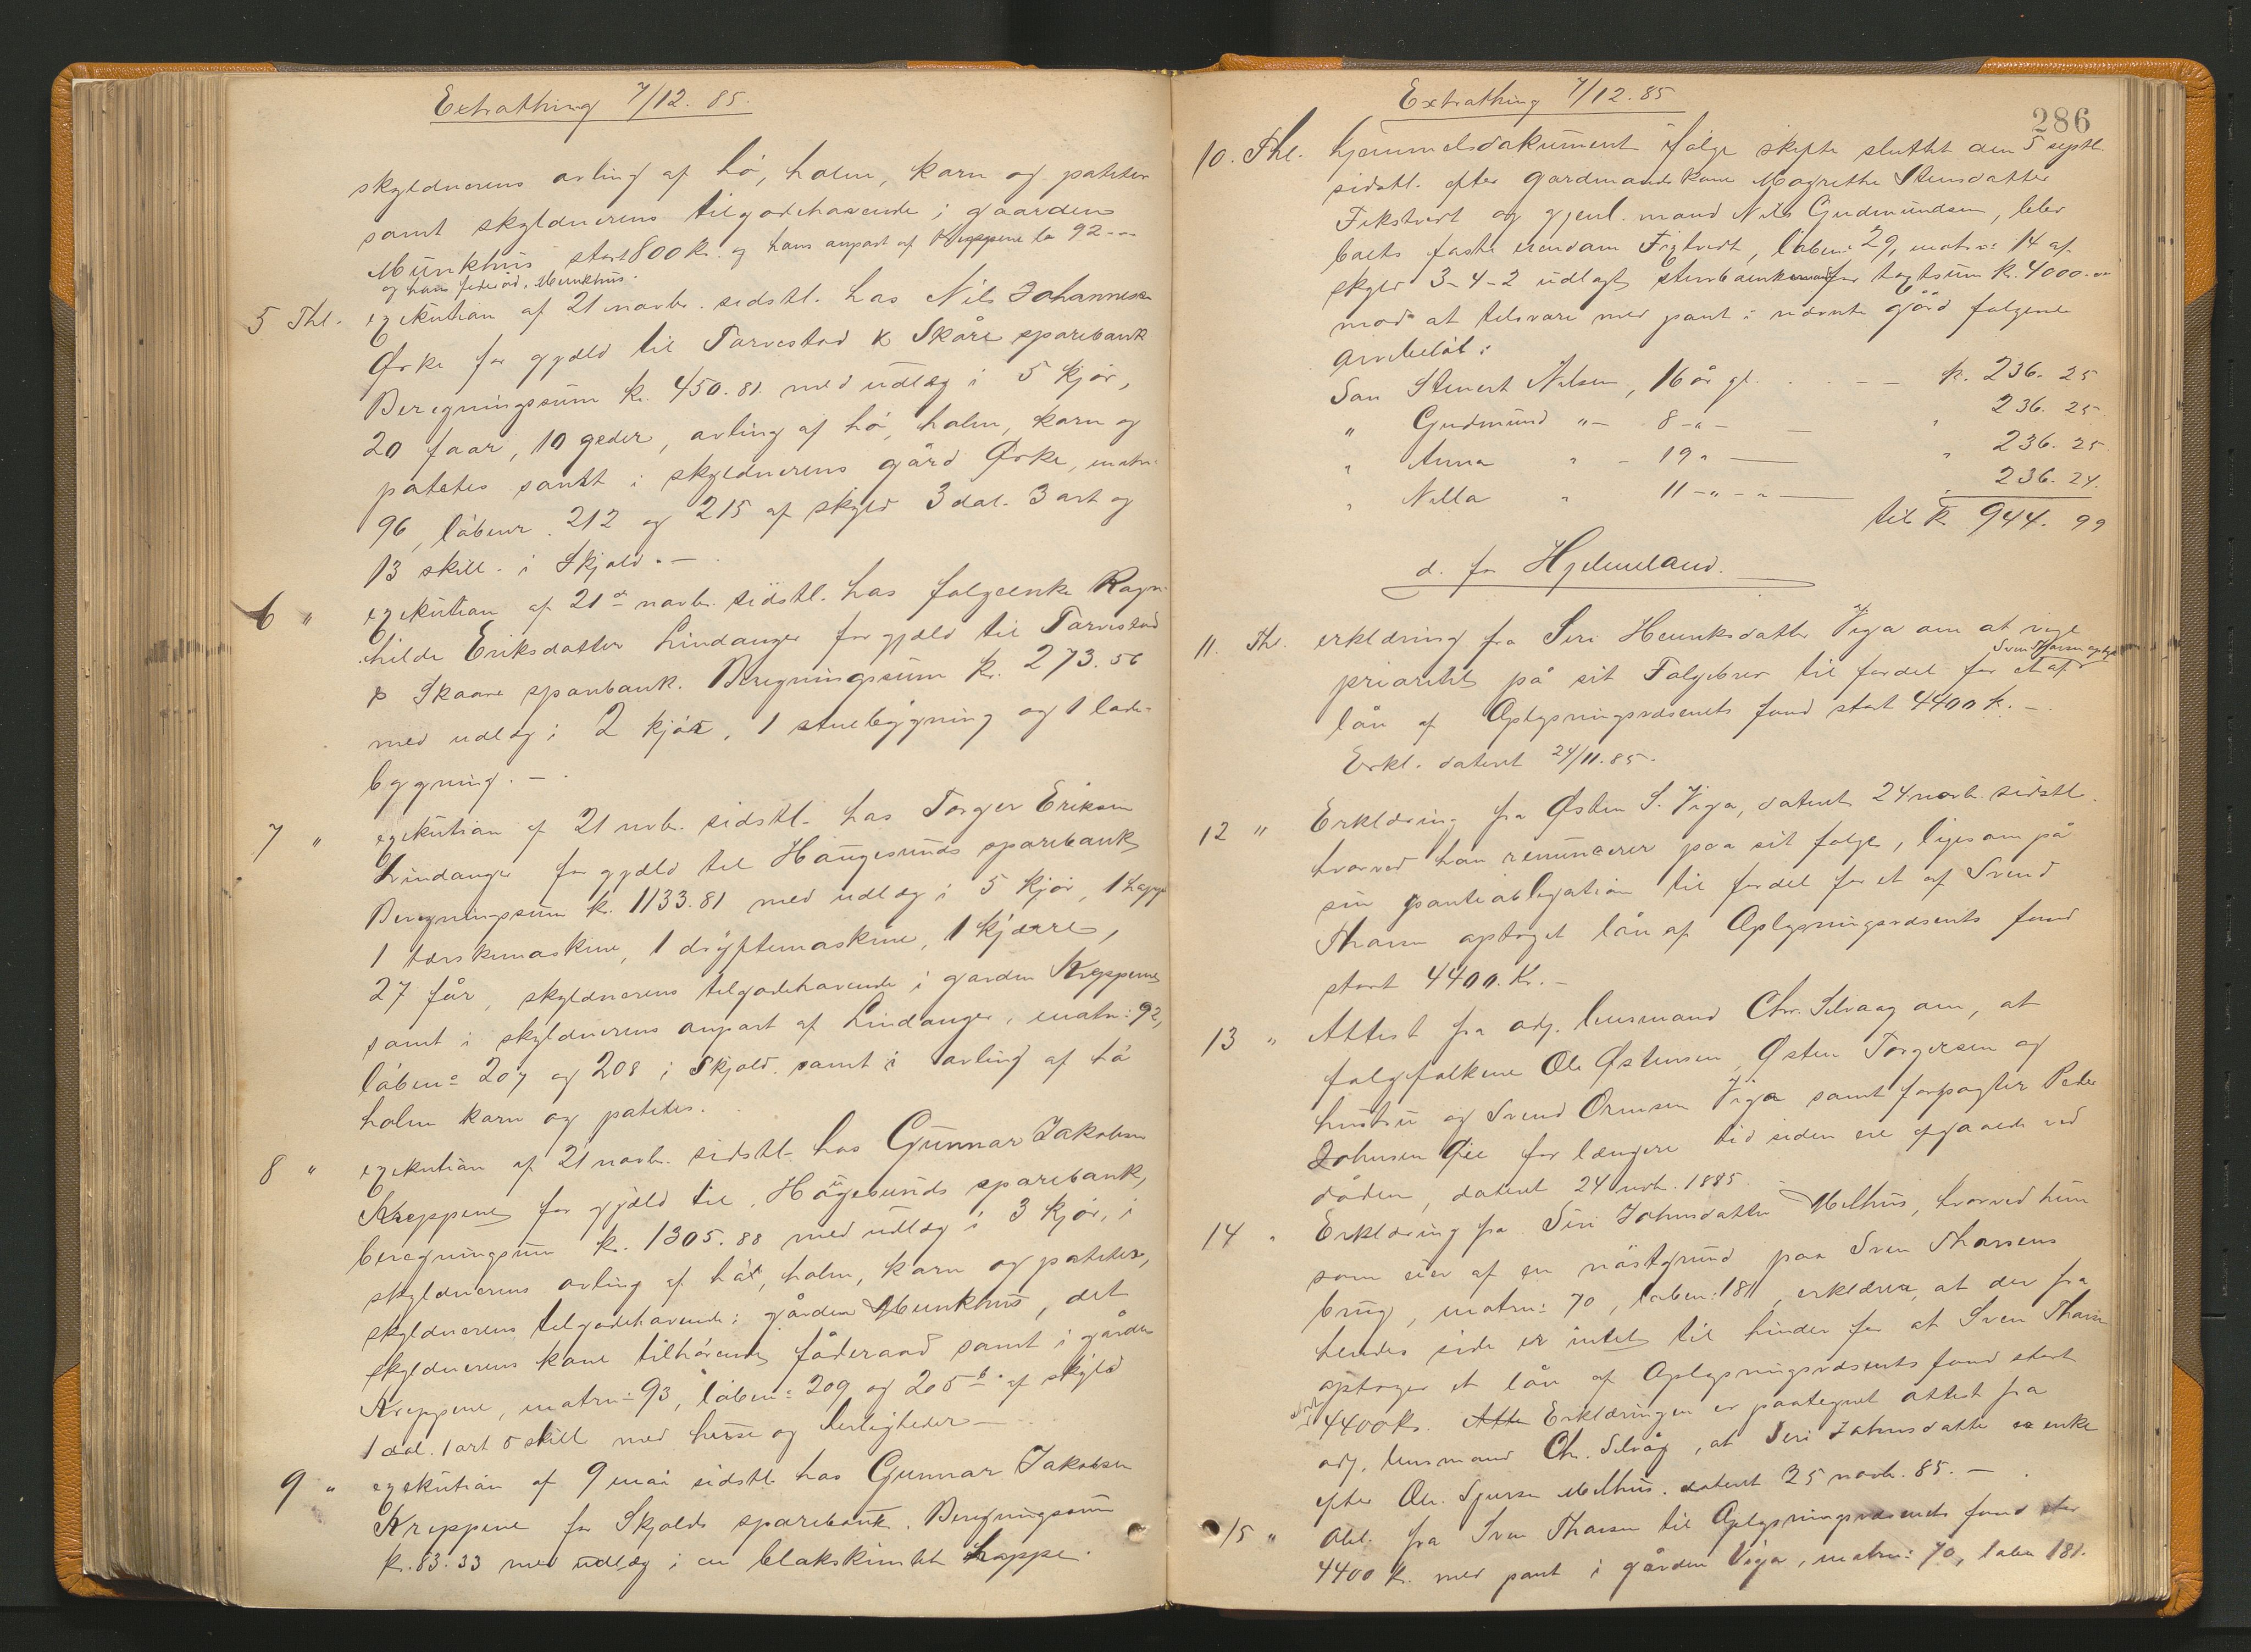 Extrathing 7/12. 85.
skyldnerens avling af hö, halm, korn og poteter
samt skyldnerens tilgodehavende i gaarden
Munkhus stort 800 Kr. og hans anpart af Kreppene 92
og hans föderåd i Munkhus.
5 Thl. exekution af 21 novbr. sidstl. hos Nils Johannesen
Örke for gjæld til Torvestad & Skåre sparebank
Beregningssum kr. 450.81. med udlæg i 5 kjör,
20 faar, 10 geder, avling af hö, halm, korn og
potetes samt i skyldnerens gård Örke, matr.
96, löbenr. 212 og 215 af skyld 3 dal. 3 ort og
13 skill. i Skjold. -
6 " exekution af 21 novbr. sidstl. hos folgeenke Ragn-
hilde Eriksdatter Lindanger for gjæld til Torvestad
& Skaare sparebank. Beregningssum kr. 273.56
med udlæg i 2 kjör, 1 stuebygning og 1 lade-
bygning. -
7 " exekution af 21 novbr. sidstl. hos Torger Eriksen
Lindanger for gjæld til Haugesunds sparebank
Beregningssum kr. 1133.81 med udlæg i 5 kjör, 1 hoppe
1 tærskemaskine, 1 dryftemaskine, 1 kjærre,
27 får, skyldnerens tilgodehavende i gaarden Kreppene
samt i skyldnerens anpart af Lindanger, matr: 92,
löben: 207 og 208 i Skjold. samt i avling af hö
halm korn og potetes.
8 " exekution af 21 novbr. sidstl. hos Gunnar Jakobsen
Kreppene for gjæld til Haugesunds sparebank,
beregningssum kr. 1305.88 med udlæg i 3 kjör, i
skyldnerens avling af hö, halm, korn og potetes,
skyldnerens tilgodehavende i gården Munkhus, det
skyldnerens kone tilhörende föderaad samt i gården
Kreppene, matr: 93, löben: 209 og 205 b. af skyld
1 dal. 1 ort 5 skill med huse og herligheder -
9 " exekution af 9 mai sidstl. hos Gunnar Jakobsen
Kreppene for Skjolds sparebank. Beregningssum
kr. 83.33 med udlæg i en blakskimlet hoppe.
Extrathing 7/12. 85
286
10. Thl. hjemmelsdokument ifölge skifte sluttet den 5 septbr.
sidstl. efter gaardmandskone Magrethe Stensdatter
Fikstvert og gjenl. mand Nils Gudmundsen, blev
boets faste eiendom Fixtvedt, löben: 29, matr: 14 af
skyld 3-4-2 udlagt for taxtsum kr. 4000.
mod at tilsvare med pant i nævnte gård folgende
arvebelöb:
Son Stenert Nilsen, 16 år gl. . . - - kr. 236. 25
" Gudmund " - 8 - " - - " 236. 25.
" Anna " - 19 " - " 236. 25
" Nilla " 11 - " - " - . 236. 24.
til kr 944. 99
d. for Hjelmeland.
11. Thl. erklæring fra Siri Henriksdatter Viga om at vige
prioritet på sit Folgebrev til fordel for et af Sven Thorsen optaget
lån af Oplysningsvæsenets fond stort 4400 K. -
Erkl. dateret 24/11.85.
12 " Erklæring fra Østen S. Viga, dateret 24 novb. sidstl.
hvorved han renuncerer paa sit folge, ligesom på
sin panteobligation til fordel for et af Svend
Thorsen optaget lån af Oplysningsvæsenets fond
stort 4400. Kr. -
13 " Attest fra adj. lensmand Chr. Selvaag om, at
folgefolkene Ole Østensen, Østen Torgersen og
hustru og Svend Ormsen Viga samt forpagter Peder
Johnsen Gie for længere tid siden ere afgaaede ved
döden, dateret 24 novb. 1885
14 " Erklæring fra Siri Johnsdatter Melhus, hvorved hun
som eier af en nöstgrund paa Sven Thorsens
brug, matr: 70, löben: 181, erklærer, at der fra
hendes side er intet til hinder for at Sven Thorsen
optager et lån af Oplysningsvæsenets fond stort
4400 kr. Erklæringen er paategnet attest fra
adj. lensmand Ch. Selvåg, at Siri Johnsdatter er enke
efter Ole Sjursen Melhus. dateret 25 novb. 85. -
15 " Obl. fra Sven Thorsen til Oplysningsvæsenets fond stor
4400 K. med pant i gården Viga, matr: 70, löbe 181.